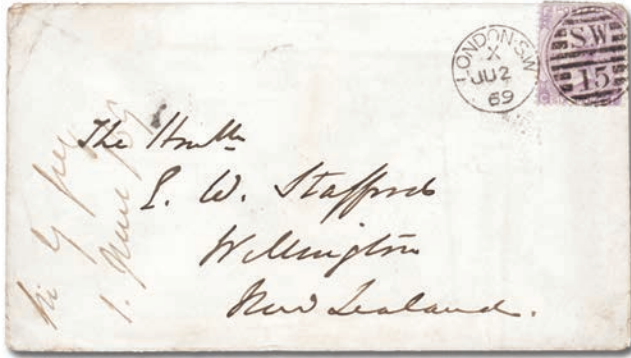 LONDON·S.W
X
JU 2
69
S.W
15
The Honble
E. W. Stafford
Wellington
New Zealand.
Sir G Grey
1. June /69